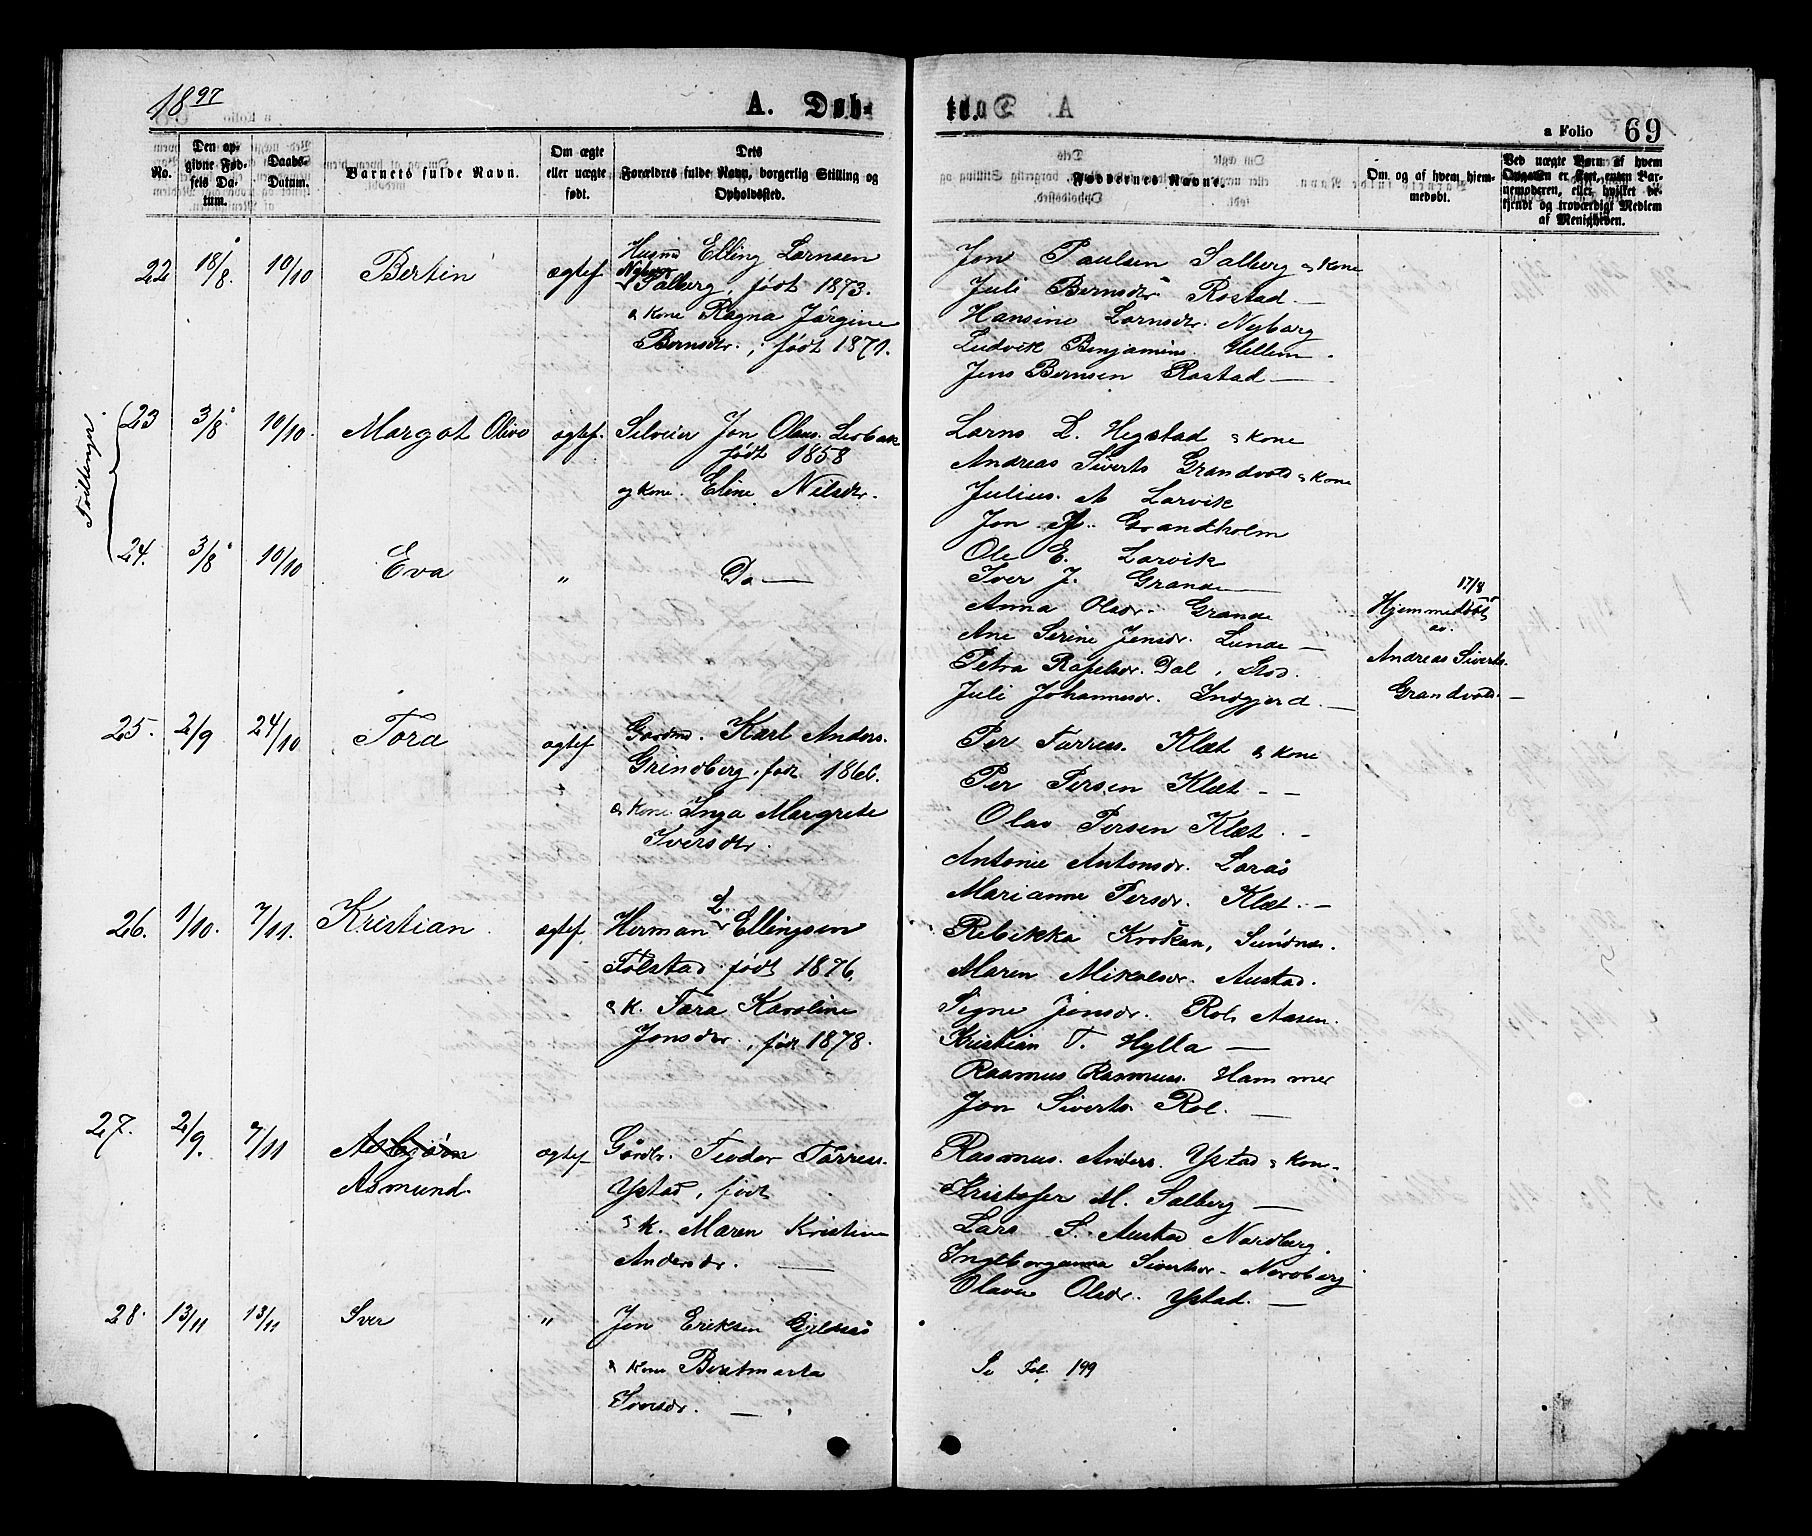 1897
A. Døb-
te.
a Folio 69
No.
Den op-
givne Fød-
sels Da-
tum.
Daabs-
Datum.
Barnets fulde Navn.
Om ægte
eller uægte
født.
Dets
Forældres fulde Navn, borgerlig Stilling og
Opholdssted.
Faddernes Navne.
Om og af hvem hjem-
medøbt.
Ved uægte Børn af hvem
Opgaven er skeet, enten Bar-
nemoderen, eller hvilket be-
kjendt og troværdigt Medlem
af Menigheden.
22 18/8. 10/10 Bertin ægtef.
Husmd Elling Larnsen
Nyborg
Salberg, født 1873.
& kone Ragna Jørgine
Bernsdtr., født 1871.
Jon Paulsen Salberg & kone
Juli Bernsdtr Rostad —
Hansine Larnsdtr. Nyborg
Ludvik Benjamins. Hellem.
Jens Bernsen Rostad —
Tvillinger.
23 3/8. 10/10. Margot Olive ægtef.
Selveier Jon Olaus. Lerbak
født 1858
og kone. Eline Nilsdtr.
Larns L. Hegstad & kone
Andreas Siverts Grandvold & kone
Julius. A Larvik
Jon J. Grandholm
24. 3/8 10/10 Eva " Do —
Ole E. Larvik
Iver J. Grande —
Anna Olsdr. Grande
Ane Serine Jensdr. Lunde —
Petra Rafelsdr. Dal, Stod.
Juli Johannesdr. Indgjerd. —
17/8
Hjemmedøbt
av.
Andreas Siverts.
Grandvold —
25. 2/9 24/10 Tora ægtef
Gaardmd. Karl Anders.
Grindberg, født 1866.
& kone Inga Margrete
Iversdtr.
Per Torress. Klæt & kone
Per Persen Klæt - -
Olav Persen Klæt. -
Antonie Antonsdr. Laraas
Marianne Persdr. Klæt. —
26. 1/10. 7/11. Kristian. ægtef.
Herman L. Ellingsen
Tølstad født 1876,
& k. Tora Karoline
Jonsdtr., født 1878.
Rebikka Krokan, Sundnes.
Maren Mikalsdr. Austad.
Signe Jonsdr. Rol, Aasen.
Kristian T. Hylla —
Rasmus Rasmuss. Hammer
Jon Siverts. Rol. —
27. 2/9. 7/11 Asbjørn
Asmund. ægtef-
Gårdbr. Teodor Torress.
Ystad, født
& k. Maren Kristine
Andersdr. —
Rasmus. Anders. Ystad & kone.
Kristofer M. Salberg —
Lars S. Austad Nordberg.
Ingeborganna Sivertsdr. Nordberg
Olava Olsdr. Ystad. —
28. 13/11 13/11 Iver "
Jon Eriksen Gjelsås
& kone Beritmarta
Iversdr. — .
Se Fol. 199